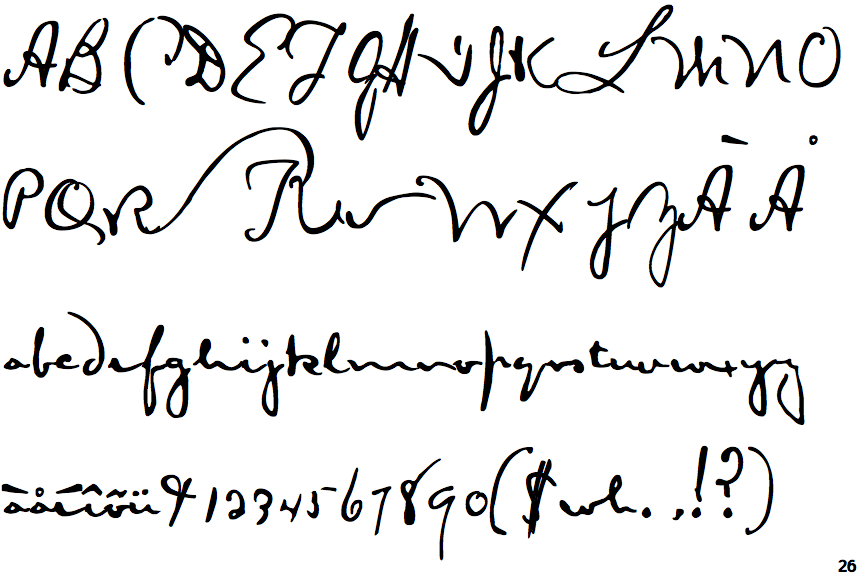 ABCDEFGHIJKLMNO
PQRSTUVWXYZÀÅ
abcdefghijklmnopqrstuvwxyz
àåéîõü&1234567890($wh.,!?)
26